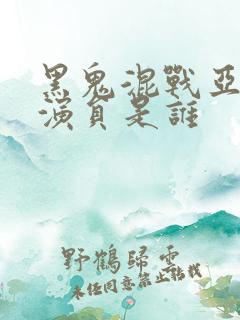 黑鬼混戰亞
演員是誰
野鶴歸雲
未经同意禁止转载